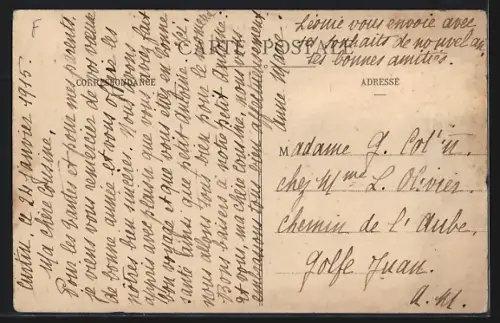 Léonie vous envoie avec
ses souhaits de nouvel an
ses bonnes amitiés.
CARTE POSTALE
CORRESPONDANCE
ADRESSE
le 24 Janvier 1915.
Ma chère Cousine,
Pour les tantes et pour mes parents
je viens vous remercier de vos vœux
de bonne année et vous offre les
nôtres bien sincères. Nous avons
appris avec plaisir que vous avez fait
bon voyage et que vous êtes en bonne
santé ainsi que petit Antoine. Ici
nous allons tous bien pour le moment.
Bons baisers à notre petit Antoine
et vous, ma chère cousine, nous vous
embrassons tous bien affectueusement
Anne Marie
Madame G.
chez Mme L. Olivier
Chemin de l'Aube
Golfe Juan.
A. M.